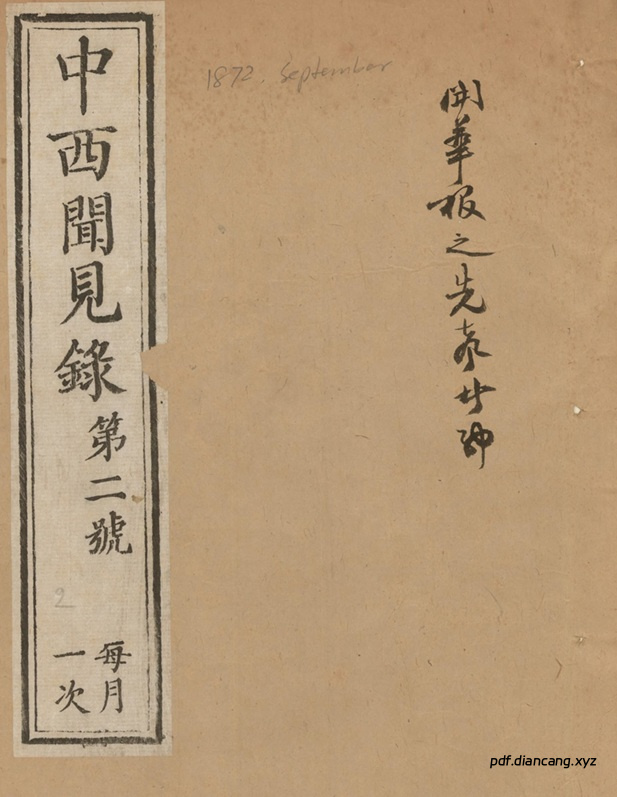 中西聞見錄第二號
每月
一次
1872. September
開華報之先
2
pdf.diancang.xyz